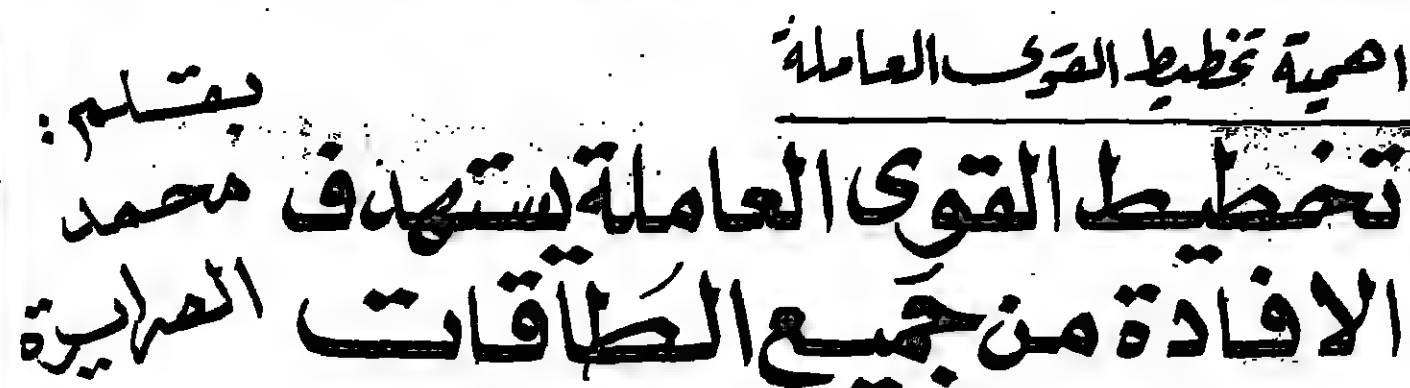 اهمية تخطيط القوى العاملة
تخطيط القوى العاملة يستهدف
الافادة من جميع الطاقات
بقلم :
محمد
الصرايرة